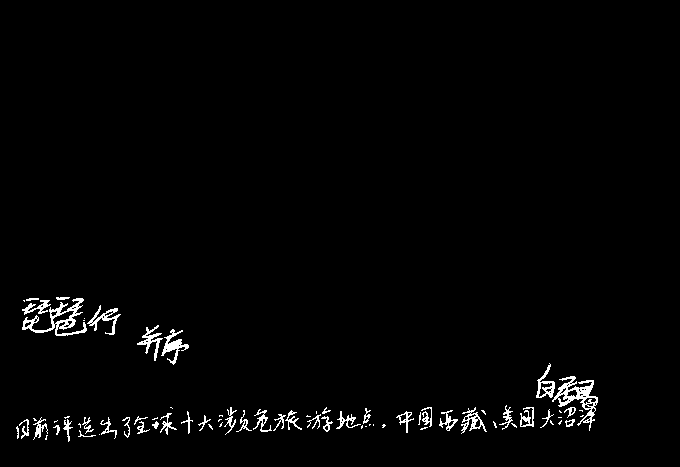 琵琶行
并序
白居易
目前评选出了全球十大濒危旅游地点，中国西藏、美国大沼泽